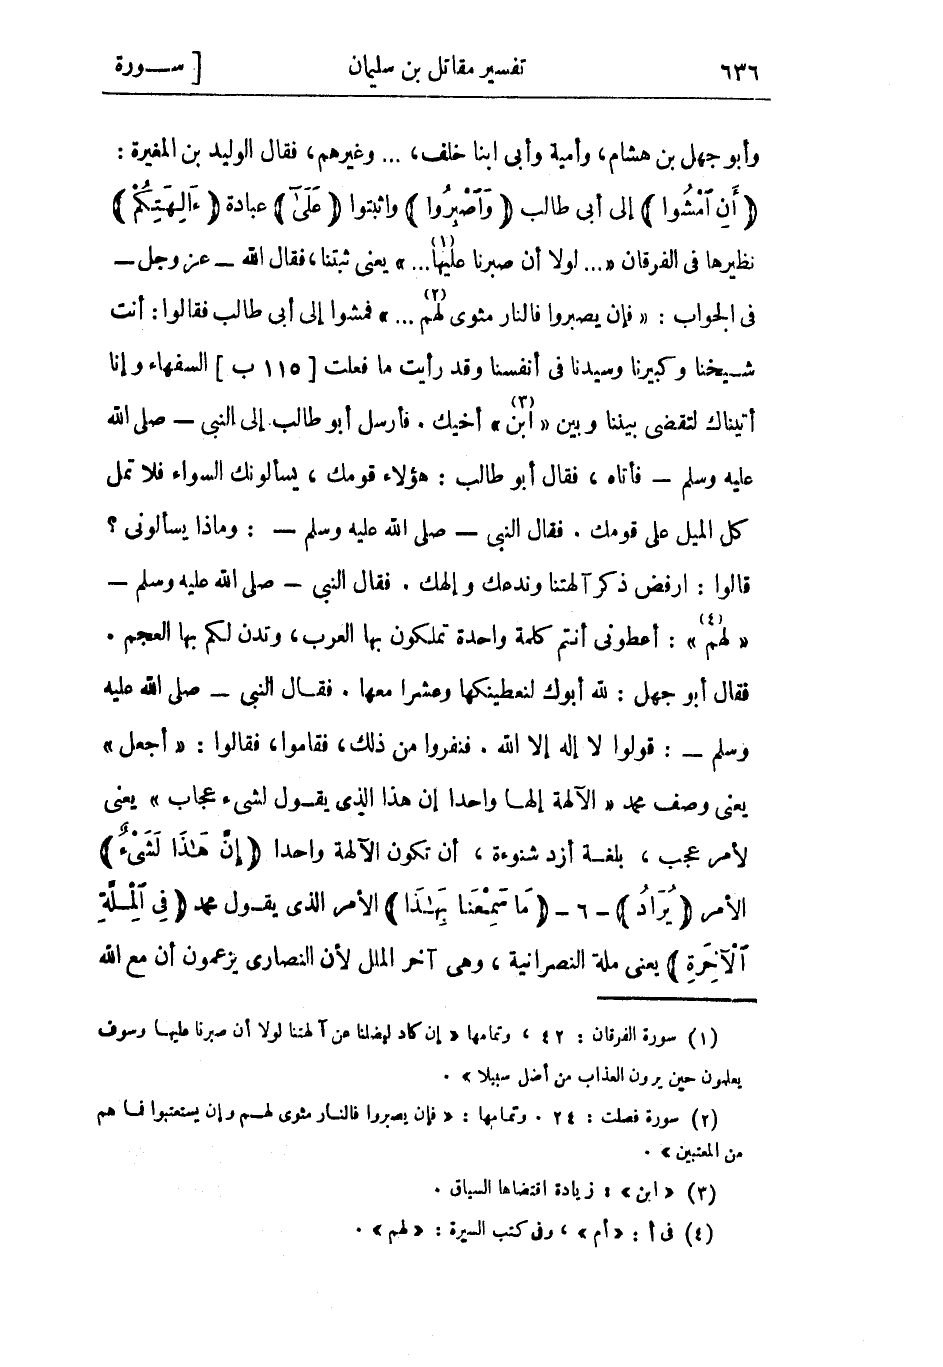 ٦٣٦ تفسير مقاتل بن سليمان [ سـورة
وأبو جهل بن هشام، وأمية وأبى ابنا خلف، ... وغيرهم، فقال الوليد بن المغيرة :
﴿ أَنِ ٱمْشُوا ﴾ إلى أبى طالب ﴿ وَٱصْبِرُوا ﴾ واثبتوا ﴿ عَلَىٰٓ ﴾ عبادة ﴿ ءَالِهَتِكُمْ ﴾
نظيرها فى الفرقان « ... لولا أن صبرنا عليها(١)... » يعنى ثبتنا، فقال الله — عز وجل —
فى الجواب : « فإن يصبروا فالنار مثوى لهم(٢) ... » فمشوا إلى أبى طالب فقالوا : أنت
شيخنا وكبيرنا وسيدنا فى أنفسنا وقد رأيت ما فعلت [ ١١٥ ب ] السفهاء وإنا
أتيناك لتقضى بيننا وبين « ابن(٣) » أخيك . فأرسل أبو طالب إلى النبى — صلى الله
عليه وسلم — فأتاه ، فقال أبو طالب : هؤلاء قومك ، يسألونك السواء فلا تمل
كل الميل على قومك . فقال النبى — صلى الله عليه وسلم — : وماذا يسألونى ؟
قالوا : ارفض ذكر آلهتنا وندعك وإلهك . فقال النبى — صلى الله عليه وسلم —
« لهم(٤) » : أعطونى أنتم كلمة واحدة تملكون بها العرب، وتدن لكم بها العجم .
فقال أبو جهل : لله أبوك لنعطينكها وعشرا معها . فقـال النبى — صلى الله عليه
وسلم — : قولوا لا إله إلا الله . فنفروا من ذلك، فقاموا، فقالوا : « أجعل »
يعنى وصف محمد « الآلهة إلهـا واحدا إن هذا الذى يقـول لشىء عجاب » يعنى
لأمر عجب ، بلغـة أزد شنوءة ، أن تكون الآلهة واحدا ﴿ إِنَّ هَـٰذَا لَشَىْءٌ ﴾
الأمر ﴿ يُرَادُ ﴾ - ٦ - ﴿ مَا سَمِعْنَا بِهَـٰذَا ﴾ الأمر الذى يقـول محمد ﴿ فِى ٱلْمِلَّةِ
ٱلْآخِرَةِ ﴾ يعنى ملة النصرانية ، وهى آخر الملل لأن النصارى يزعمون أن مع الله
(١) سورة الفرقان : ٤٢ ، وتمامها « إن كاد ليضلنا عن آلهتنا لولا أن صبرنا عليها وسوف
يعلمون حين يرون العذاب من أضل سبيلا » .
(٢) سورة فصلت : ٢٤ . وتمامها : « فإن يصبروا فالنـار مثوى لهـم وإن يستعتبوا فـا هم
من المعتبين » .
(٣) « ابن » : زيادة اقتضاها السياق .
(٤) فى أ : « أم » ، وفى كتب السيرة : « لهم » .